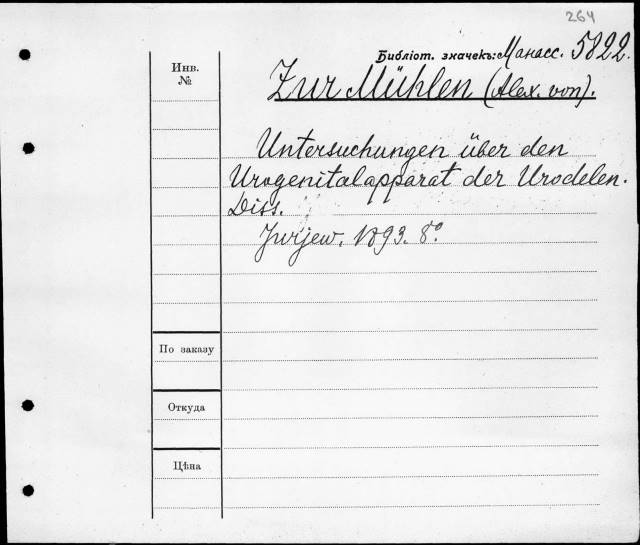 264
Библіот. значекъ: Манасс. 5822.
Инв.
№
Zur Mühlen (Alex. von).
Untersuchungen über den
Urogenitalapparat der Urodelen.
Diss.
Jurjew. 1893. 8°.
По заказу
Откуда
Цѣна